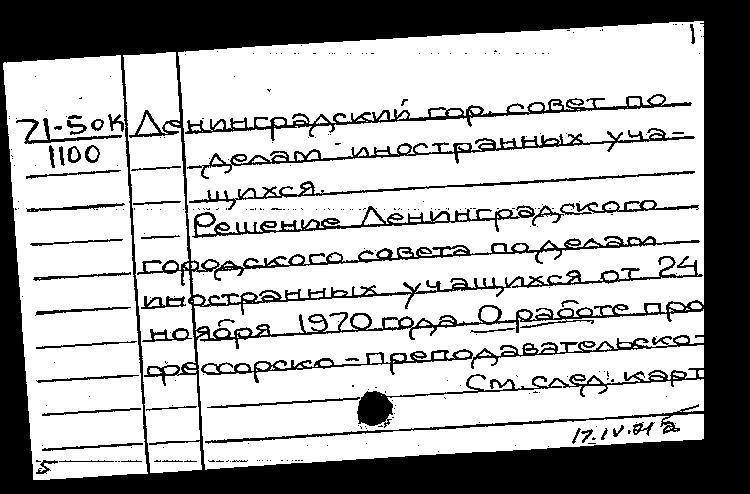 1
71-5 ок Ленинградский гор. совет по
1100
делам иностранных уча-
щихся.
Решение Ленинградского
городского совета по делам
иностранных учащихся от 24
ноября 1970 года О работе про
фессорско-преподавательско-
См. след. карт
17.IV.71
5